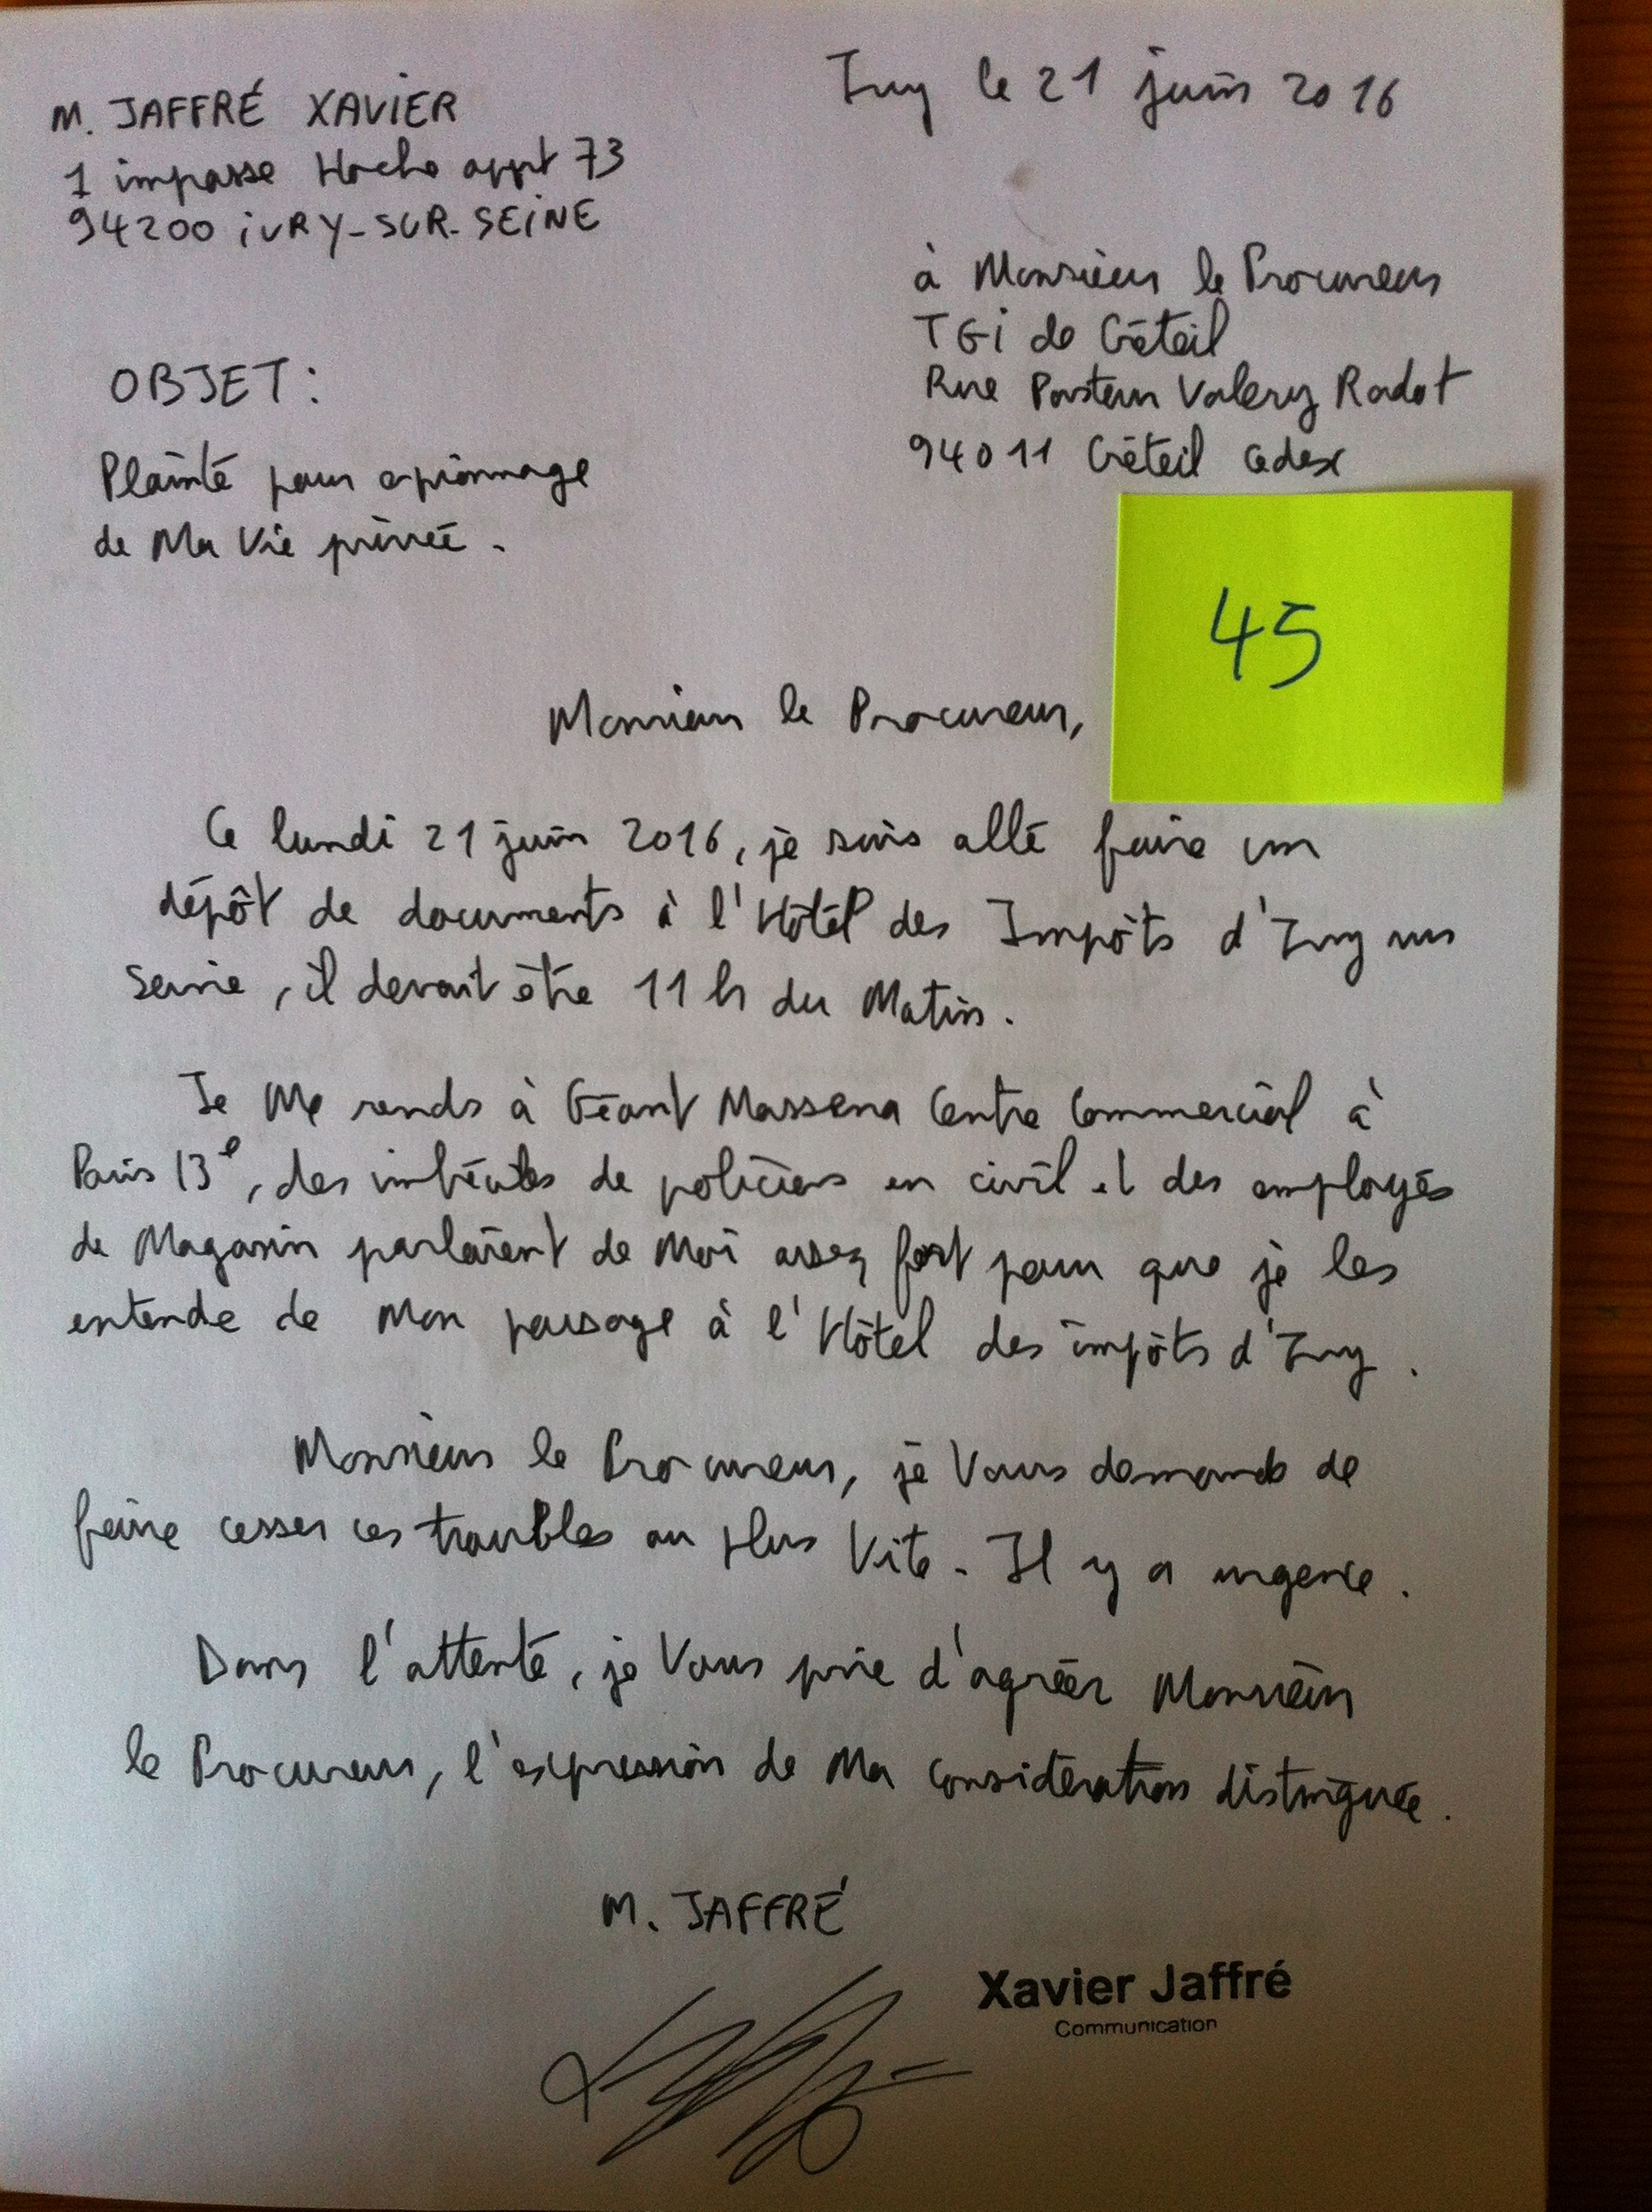 M. JAFFRÉ XAVIER
1 impasse Hoche appt 73
94200 iVRY-SUR-SEiNE
Ivry le 21 juin 2016
à Monsieur le Procureur
TGi de Créteil
Rue Pasteur Valery Radot
94011 Créteil Cedex
OBJET :
Plainte pour espionnage
de Ma Vie privée.
45
Monsieur le Procureur,
Ce lundi 21 juin 2016, je suis allé faire un
dépôt de documents à l'Hôtel des Impôts d'Ivry sur
Seine, il devait être 11 h du Matin.
Je Me rends à Géant Massena Centre Commercial à
Paris 13e, des imbéciles de policiers en civil et des employés
de Magasin parlaient de Moi assez fort pour que je les
entende de Mon passage à l'Hôtel des impôts d'Ivry.
Monsieur le Procureur, je Vous demande de
faire cesser ces troubles au plus Vite. Il y a urgence.
Dans l'attente, je Vous prie d'agréer Monsieur
le Procureur, l'expression de Ma Considération distinguée.
M. JAFFRÉ
Xavier Jaffré
Communication